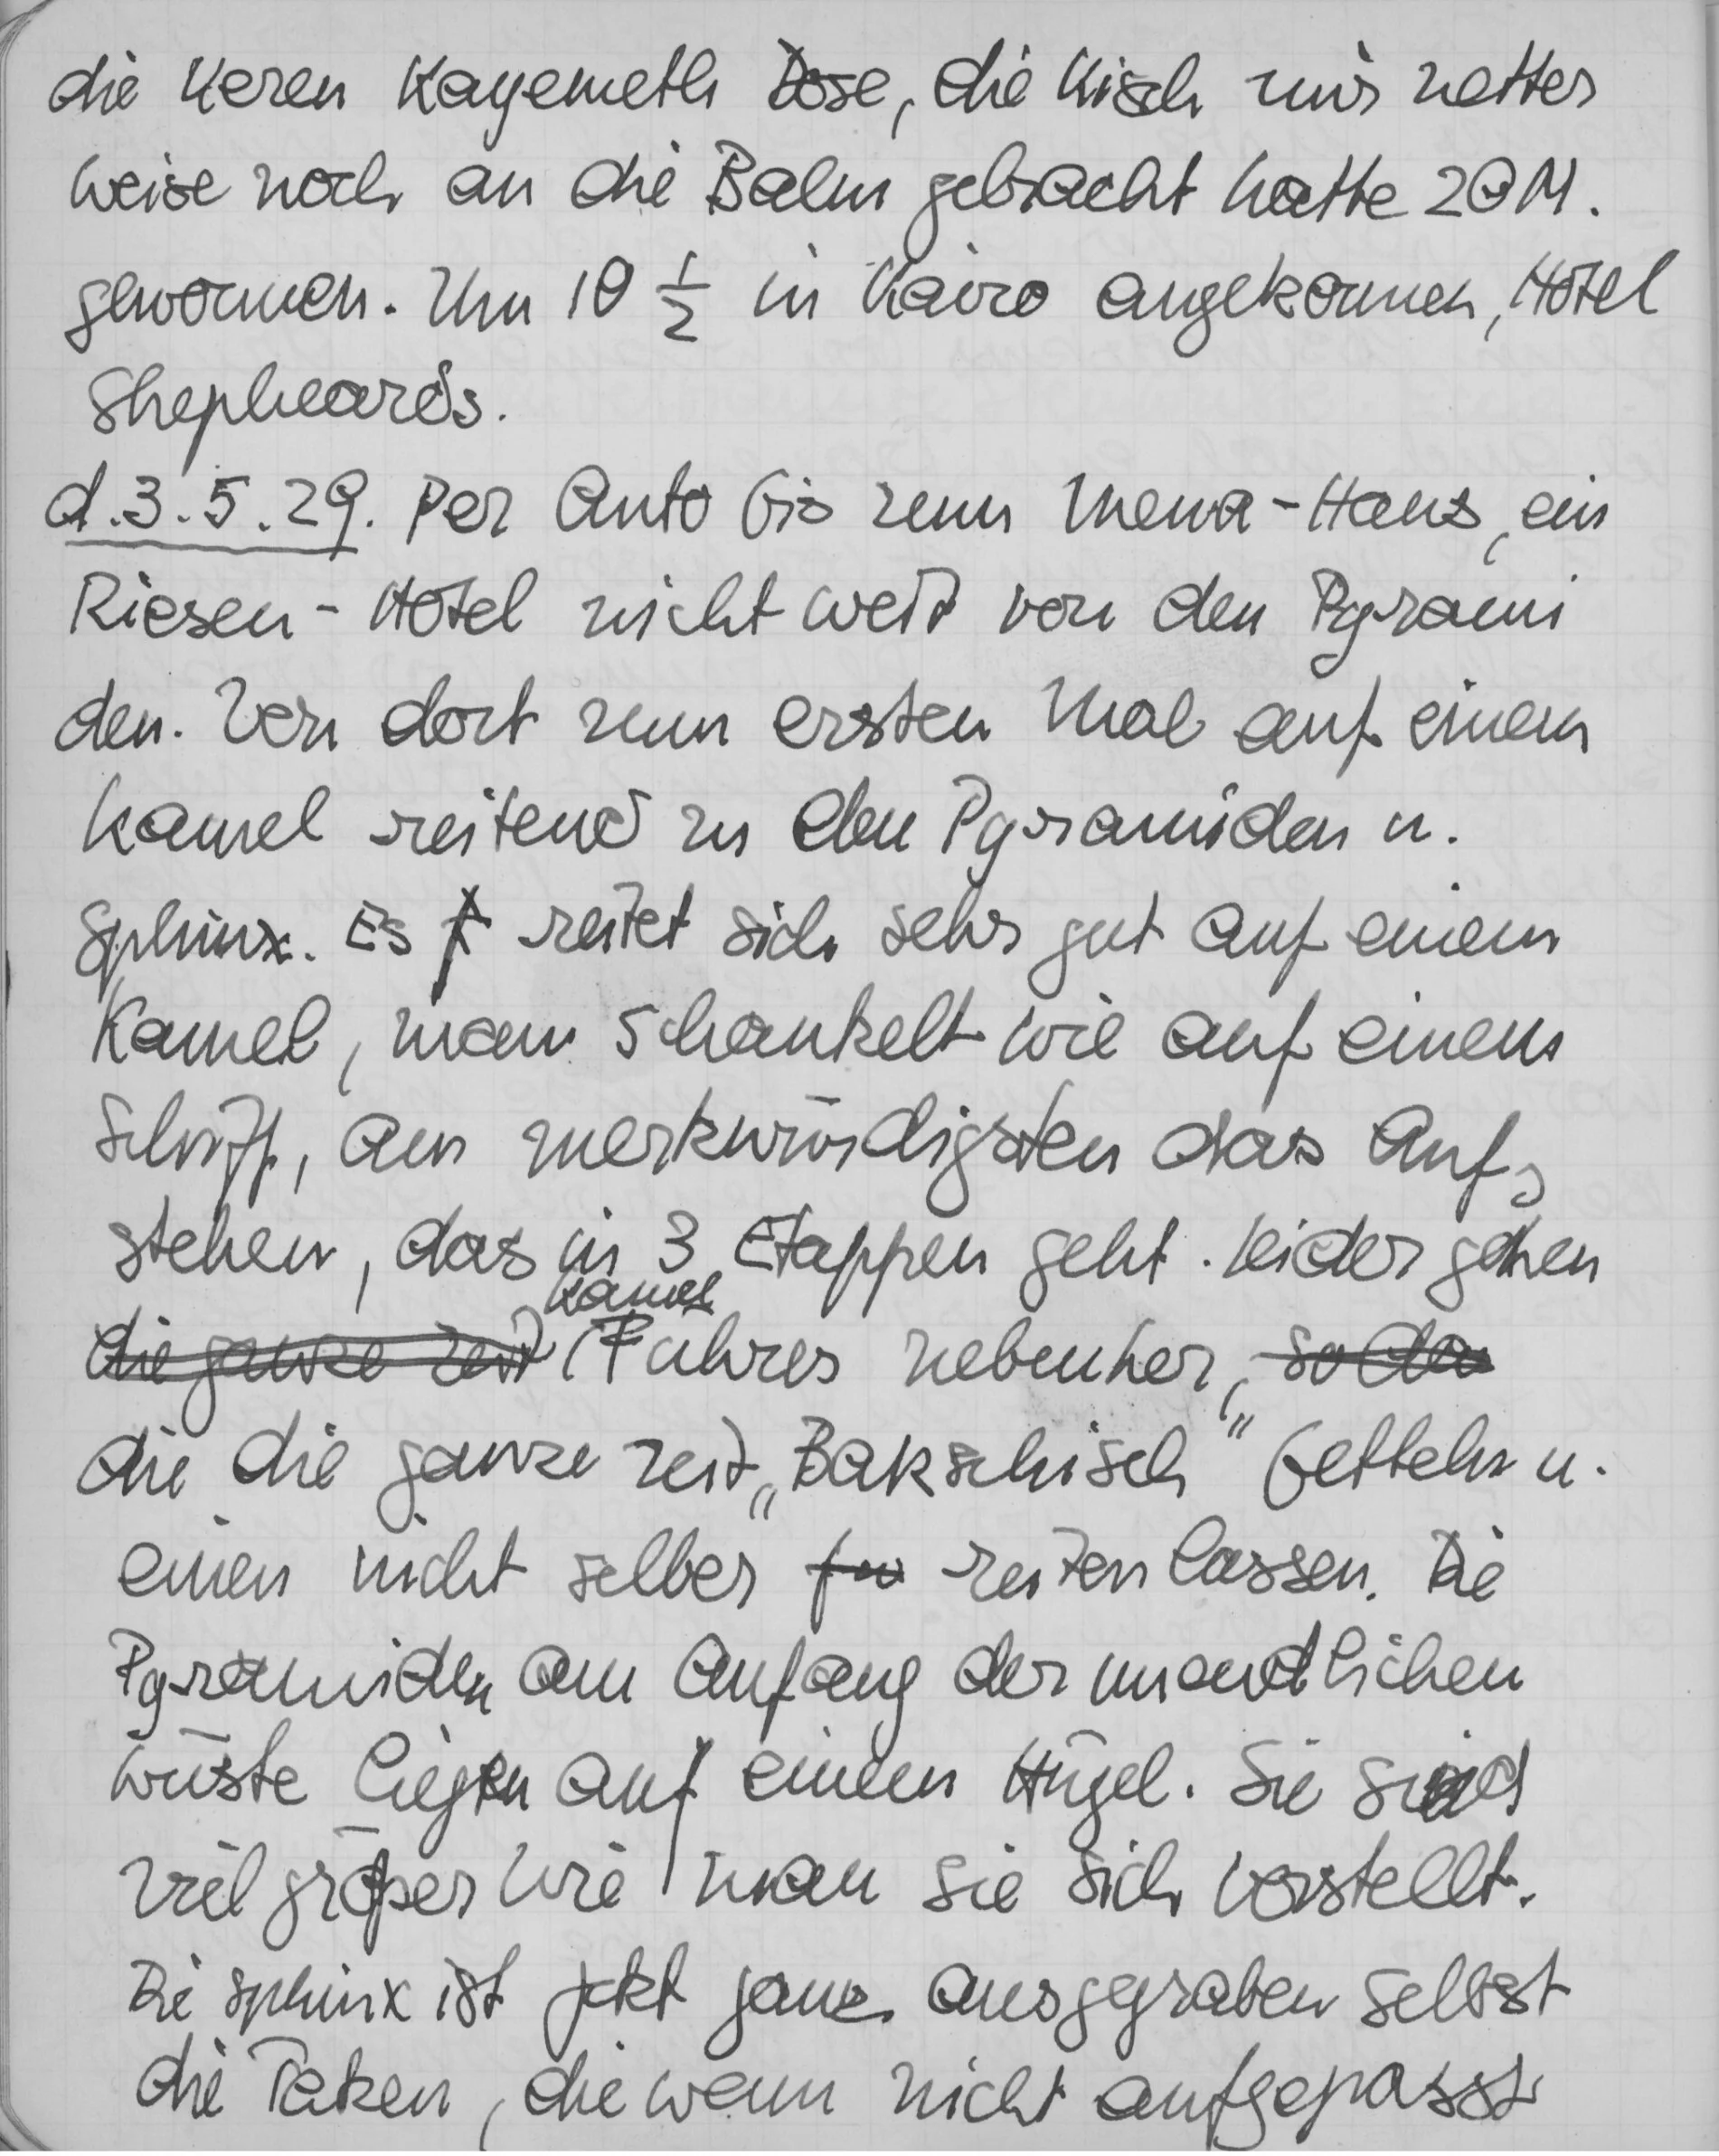 die Keren Kayemeth Dose, die Kisch mir netter
weise noch an die Bahn gebracht hatte 20 M.
gewonnen. Um 10 1/2 in Kairo angekommen, Hotel
Shepheards.
d. 3. 5. 29. Per Auto bis zum Mena-Haus, ein
Riesen-Hotel nicht weit von den Pyrami
den. Von dort zum ersten Mal auf einem
Kamel reitend zu den Pyramiden u.
Sphinx. Es reitet sich sehr gut auf einem
Kamel, man schaukelt wie auf einem
Schiff, am merkwürdigsten das Auf-
stehen, das in 3 Etappen geht. Leider gehen
die ganze Zeit Kamel Führer nebenher, so da
die die ganze Zeit „Bakschisch" betteln u.
einen nicht selber reiten lassen. Die
Pyramiden am Anfang der unendlichen
Wüste liegen auf einem Hügel. Sie sind
viel größer wie man sie sich vorstellt.
Die Sphinx ist jetzt ganz ausgegraben selbst
die Tatzen, die wenn nicht aufgepasst